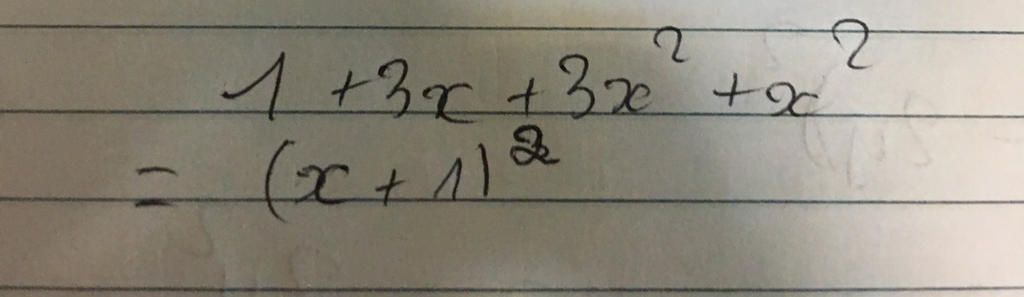 1 + 3x + 3x² + x²
= (x + 1)²